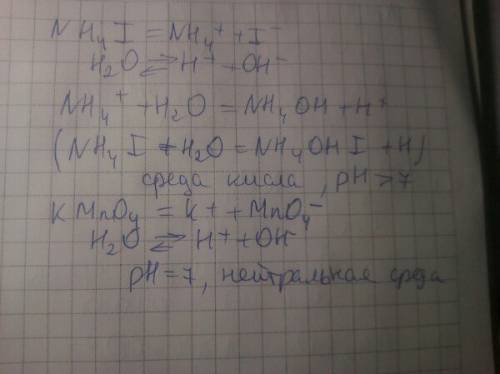 NH₄I = NH₄⁺ + I⁻
H₂O ⇄ H⁺ + OH⁻
NH₄⁺ + H₂O = NH₄OH + H⁺
(NH₄I + H₂O = NH₄OH I + H)
среда кисла, pH > 7
KMnO₄ = K⁺ + MnO₄⁻
H₂O ⇄ H⁺ + OH⁻
pH = 7, нейтральная среда